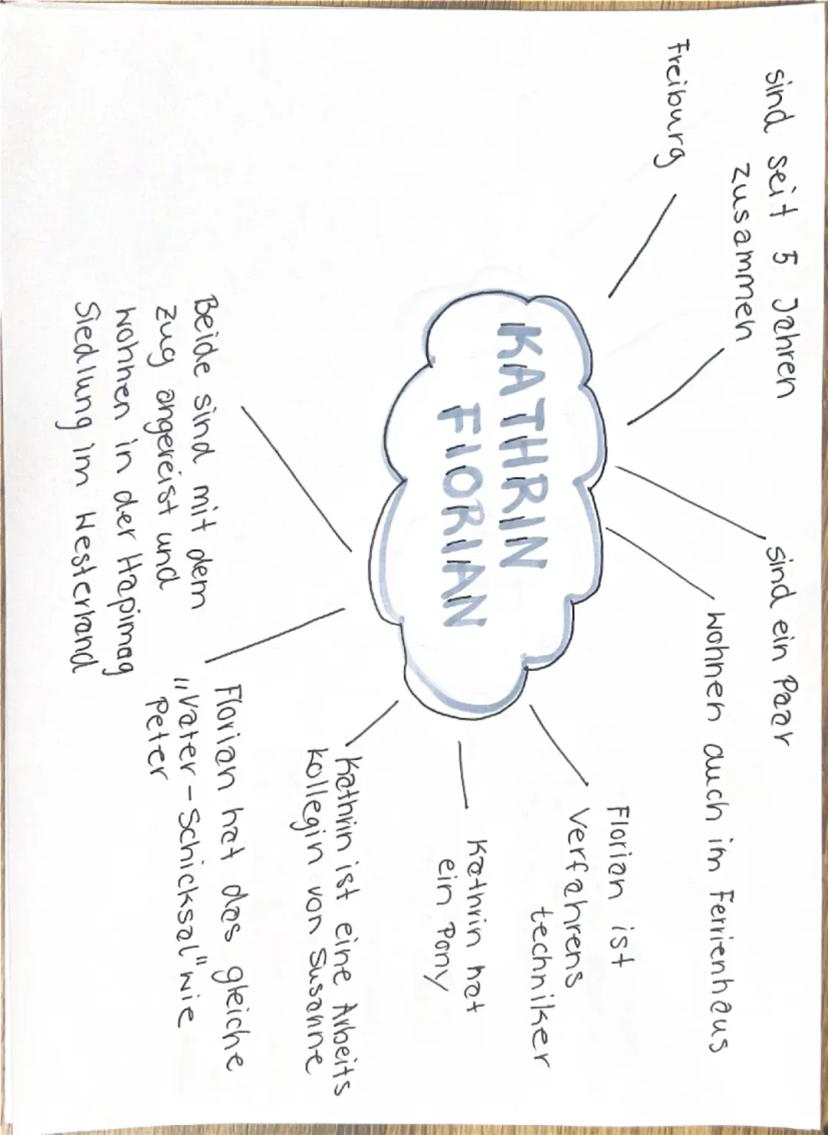 Freiburg
sind seit 5 Jahren
zusammen
sind ein Paar
wohnen auch im Ferrienhaus
KATHRIN
FlORIAN
Florian ist
Verfahrens
techniker
Kathrin hat
ein Pony
Kathrin ist eine Arbeits
kollegin von Susanne
Florian hat das gleiche
„Vater-Schicksal" wie
Peter
Beide sind mit dem
Zug angereist und
wohnen in der Hapimag
Siedlung im Westerland